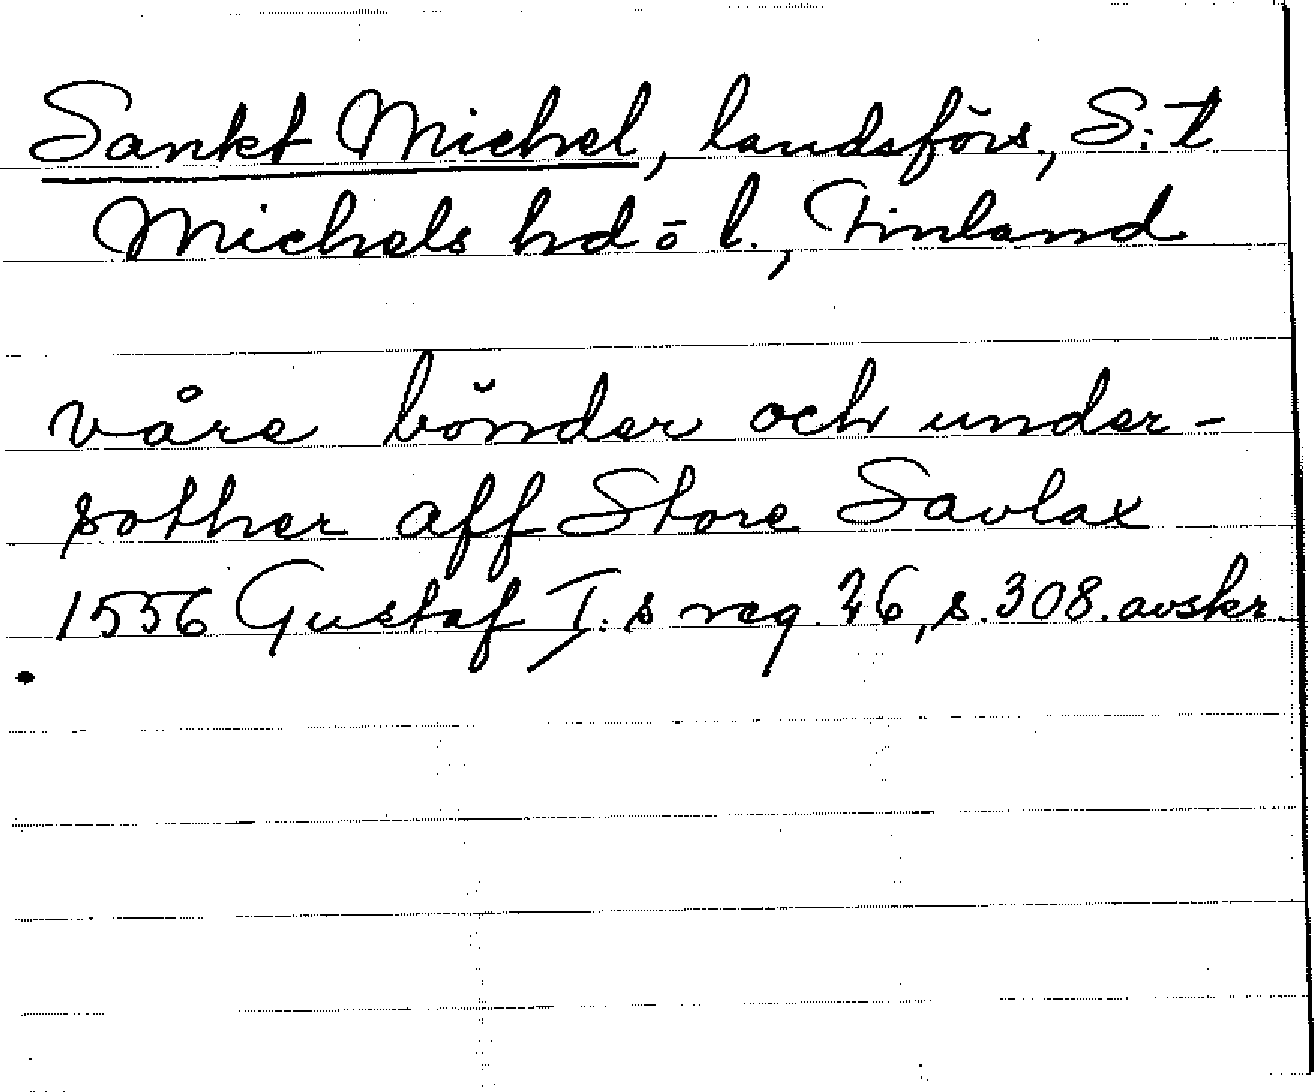 Sankt Michel, landsförs., S:t
Michels hd o l., Finland
våre bönder och under-
sother aff Store Savlax
1556 Gustaf I:s reg. 26, s. 308. avskr.